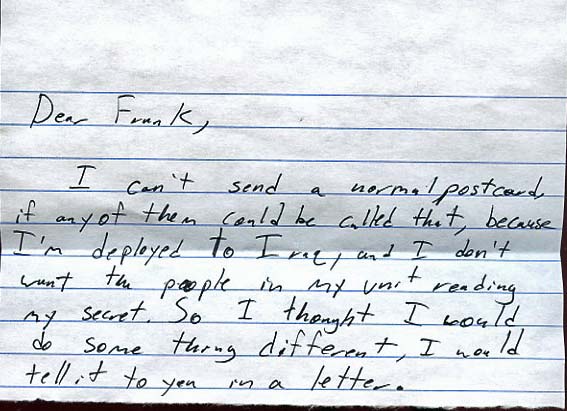 Dear Frank,
I can't send a normal postcard,
if any of them could be called that, because
I'm deployed to Iraq, and I don't
want the people in my unit reading
my secret. So I thought I would
do some thing different, I would
tell it to you in a letter.